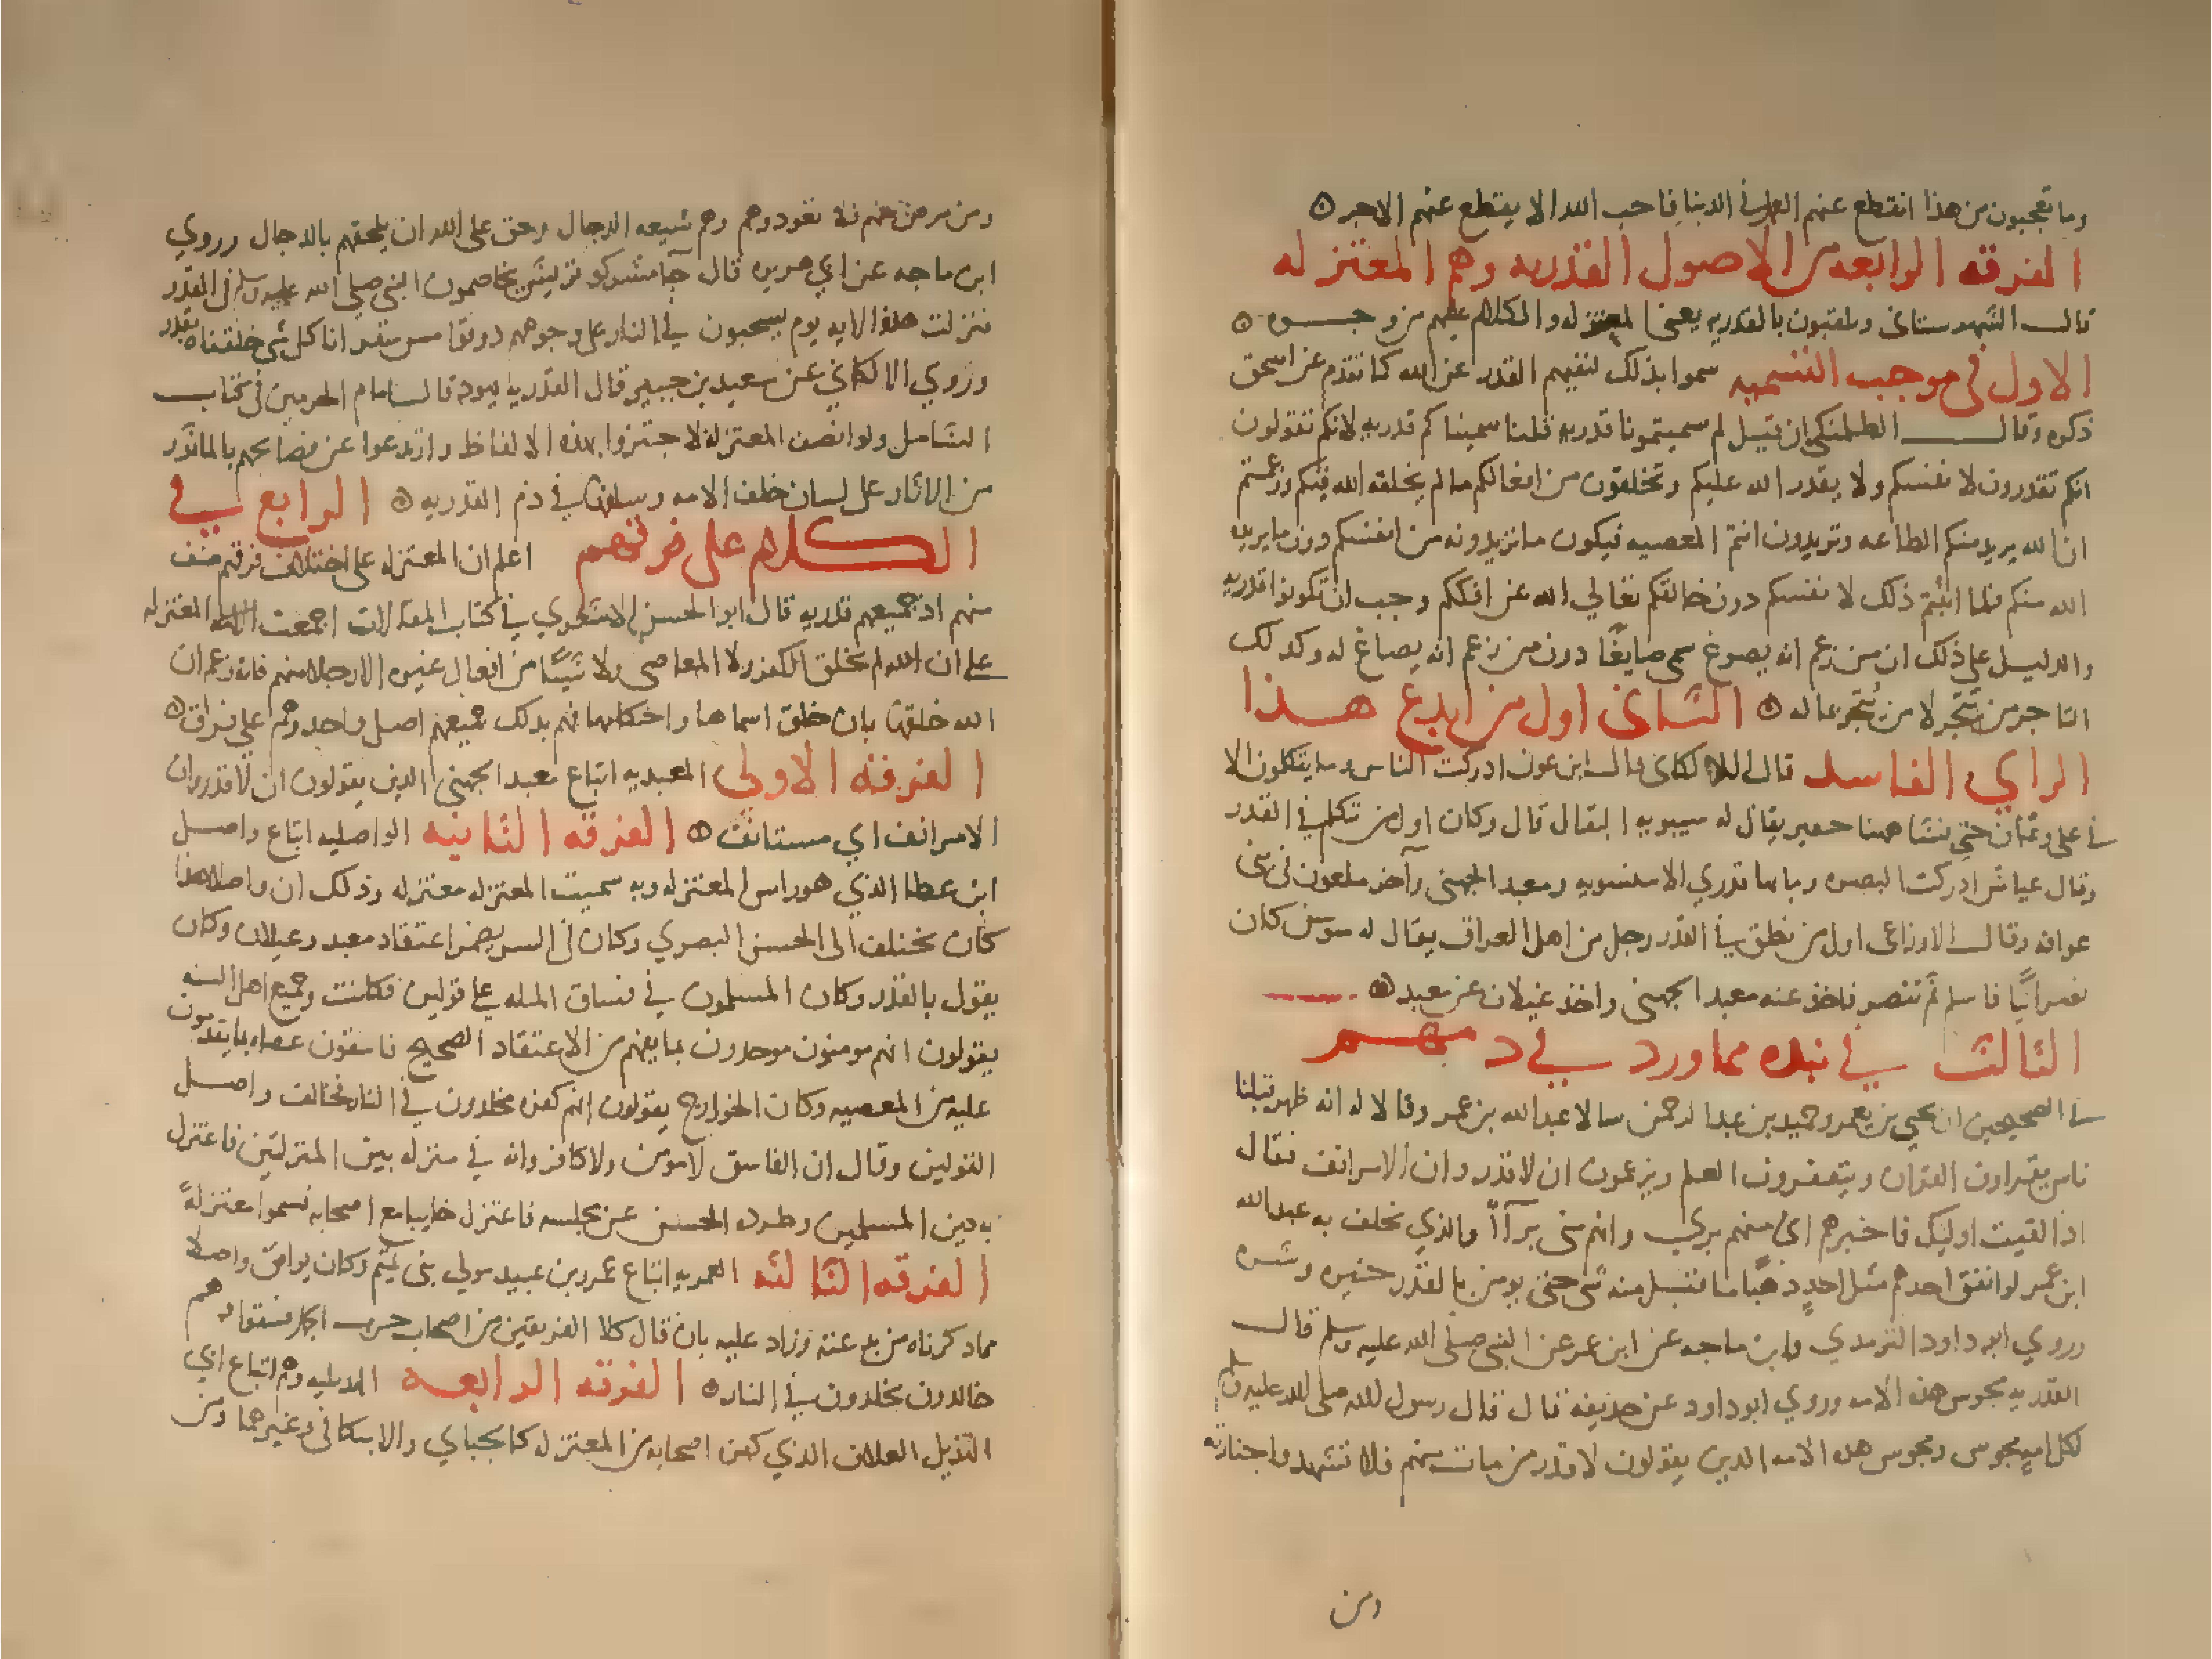 وما تعجبون من هذا انقطع عنهم العمل في الدنيا فاحب الله الا يقطع عنهم الاجر
الفرقه الرابعه من الاصول القدريه وهم المعتزله
قال الشهرستاني ويلقبون بالقدريه يعني المعتزله والكلام عليهم من وجوه
الاول في موجب التسميه سموا بذلك لنفيهم القدر عن الله كما تقدم عن اسحق
ذكره وقال الطلمنكي ان قيل لم سميتمونا قدريه قلنا سميناكم قدريه لانكم تقولون
انكم تقدرون لانفسكم ولا يقدر الله عليكم وتخلقون من افعالكم ما لم يخلقه الله فيكم وزعمتم
ان الله يريد منكم الطاعه وتريدون انتم المعصيه فيكون ما تريدونه من انفسكم دون ما يريد
الله منكم فلما اثبتم ذلك لانفسكم دون خالقكم تعالي الله عن افككم وجب ان تكونوا قدريه
والدليل علي ذلك ان من زعم انه يصوغ سمي صايغا دون من زعم انه يصاغ له وكذلك
التاجر من يتجر لا من يتجر عاله الثاني اول من ابدع هذا
الراي الفاسد قال اللالكاي قال ابن عون ادركت الناس وما يتكلمون الا
في علي وعثمان حتي نشا ههنا حقير يقال له سيبويه البقال قال وكان اول من تكلم في القدر
وقال عياش ادركت البصره وما بها قدري الا سنسويه ومعبد الجهني وآخر ملعون في بني
عوافه وقال الاوزاعي اول من نطق في القدر رجل من اهل العراق يقال له سوسن كان
نصرانيا فاسلم ثم تنصر فاخذ عنه معبد الجهني واخذ غيلان عن معبد
الثالث في نبذه مما ورد في ذمهم
في الصحيحين ان يحيي بن يعمر وحميد بن عبد الرحمن سالا عبد الله بن عمر وقالا له انه ظهر قبلنا
ناس يقراون القران ويتقفرون العلم ويزعمون ان لا قدر وان الامر انف فقال
اذا لقيت اوليك فاخبرهم اني منهم بري وانهم مني برآأ والذي يحلف به عبد الله
ابن عمر لو انفق احدهم مثل احد ذهبا ما تقبل منه شي حتي يومن بالقدر خيره وشره
وروي ابو داود الترمدي وابن ماجه عن ابن عمر عن النبي صلي الله عليه وسلم قال
القدريه مجوس هذه الامه وروي ابو داود عن حذيفه قال قال رسول الله صلي الله عليه وسلم
لكل امه مجوس ومجوس هذه الامه الذين يقولون لا قدر من مات منهم فلا تشهدوا جنازته
ومن
ومن مرض منهم فلا تعودوهم وهم شيعه الدجال وحق علي الله ان يلحقهم بالدجال وروي
ابن ماجه عن ابي هريره قال جآ مشركو قريش يخاصمون النبي صلي الله عليه وسلم في القدر
فنزلت هذه الايه يوم يسحبون في النار علي وجوههم ذوقوا مس سقر انا كل شي خلقناه بقدر
وروي الالكاي عن سعيد بن جبير قال القدريه يهود قال امام الحرمين في كتاب
الشامل ولو انصف المعتزله لاجتزوا بهذه الالفاظ وارتدعوا عن فضايحهم بالماثور
من الاثار علي لسان خلف الامه وسلفها في ذم القدريه الرابع في
الكلام علي فرقهم اعلم ان المعتزله علي اختلاف فرقهم صنف
منهم اذ جميعهم قدريه قال ابو الحسن الاشعري في كتاب المقالات اجمعت المعتزله
علي ان الله لم يخلق الكفر ولا المعاصي ولا شيئا من افعال غيره الا رجلا منهم فانه زعم ان
الله خلقها بان خلق اسماها واحكامها فهم بذلك جميعهم اصل واحد وهم علي فراق
الفرقه الاولي المعبديه اتباع معبد الجهني الذين يقولون ان لا قدر وان
الامر انف اي مستانف الفرقه الثانيه الواصليه اتباع واصل
ابن عطا الذي هو راس المعتزله وبه سميت المعتزله معتزله وذلك ان واصلا هذا
كان يختلف الي الحسن البصري وكان في السر يضمر اعتقاد معبد وغيلان وكان
يقول بالقدر وكان المسلمون في فساق المله علي قولين فكانت وجميع اهل السنه
يقولون انهم مومنون موحدون بما معهم من الاعتقاد الصحيح فاسقون عصاه بما يقدمون
عليه من المعصيه وكان الخوارج يقولون انهم كفره مخلدون في النار فخالف واصل
القولين وقال ان الفاسق لا مومن ولا كافر وانه في منزله بين المنزلتين فاعتزل
به دين المسلمين وطرده الحسن عن مجلسه فاعتزل جانبا مع اصحابه فسموا معتزلة
الفرقه الثالثه العمريه اتباع عمرو بن عبيد مولي بني تميم وكان يوافق واصلا
مما ذكرناه من بدعته وزاد عليه بان قال كلا الفريقين من اصحاب حرب الجمل فسقوا وهم
خالدون مخلدون في النار الفرقه الرابعه الهذيليه وهم اتباع ابي
الهذيل العلاف الذي كفره اصحابه من المعتزله كالجباي والاسكافي وغيرهما ومن